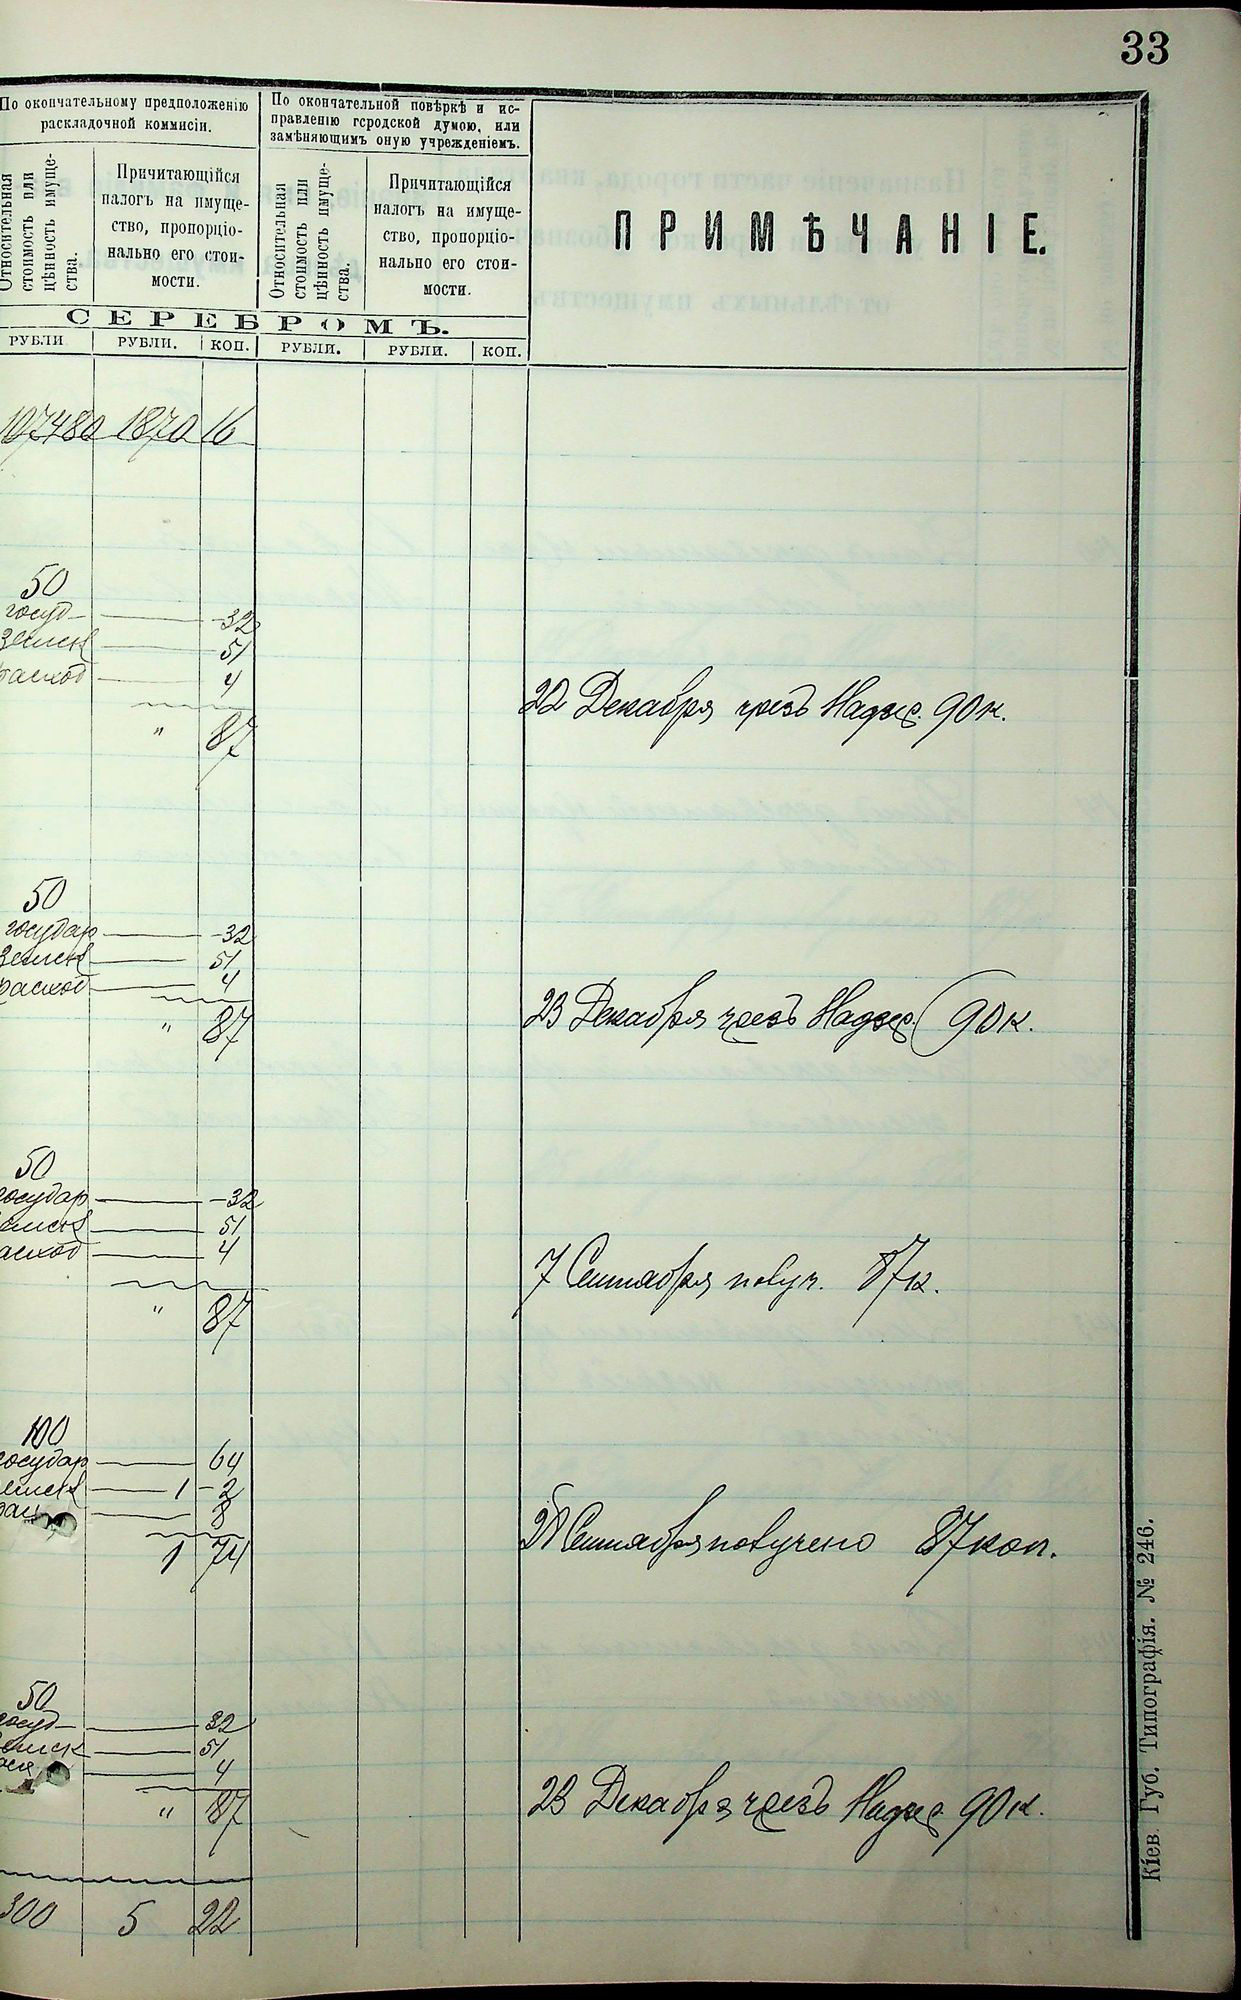 33
По окончательному предположенію
раскладочной коммисіи.
По окончательной повѣркѣ и ис-
правленію городской думою, или
замѣняющимъ оную учрежденіемъ.
Относительная
стоимость или
цѣнность имуще-
ства.
Причитающійся
налогъ на имуще-
ство, пропорціо-
нально его стои-
мости.
Относительная
стоимость или
цѣнность имуще-
ства.
Причитающійся
налогъ на имуще-
ство, пропорціо-
нально его стои-
мости.
ПРИМѢЧАНІЕ.
СЕРЕБРОМЪ.
РУБЛИ. РУБЛИ. КОП. РУБЛИ. РУБЛИ. КОП.
107480 1870 16
50
госуд — 32
земск 51
расход 4
22 Декабря чрезъ Надзир. 90 к.
" 87
50
государ — 32
земск 51
расход 4
23 Декабря чрезъ Надзир. 90 к.
" 87
50
государ — 32
земск 51
расход 4
7 Сентября получ. 87 к.
" 87
100
государ 64
земск 1 — 2
8
Сентября получено 87 коп.
1 74
50
госуд — 32
земск 51
4
23 Декабря чрезъ Надзир. 90 к.
" 87
300 5 22
Кіев. Губ. Типографія. № 246.